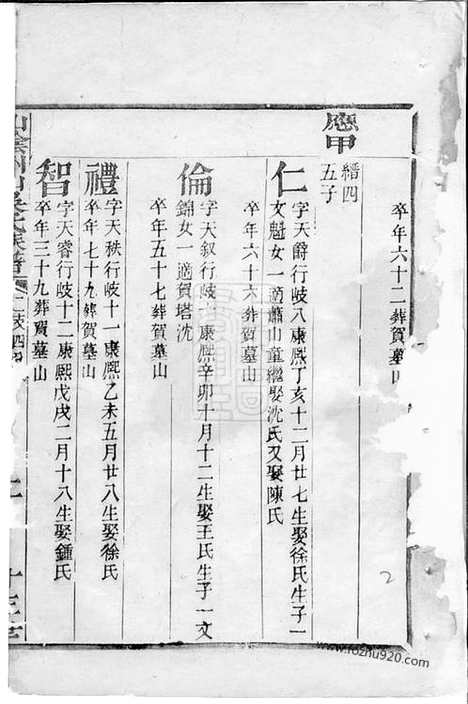 卒年六十二葬賀墓山
應甲
縉四
五子
仁
字天爵行岐八康熙丁亥十二月廿七生娶徐氏生子一
文魁女一適蕭山童繼娶沈氏又娶陳氏
卒年六十六葬賀墓山
倫
字天叙行岐 康熙辛卯十月十二生娶王氏生子一文
錦女一適賀塔沈
卒年五十七葬賀墓山
禮
字天秩行岐十一康熙乙未五月廿八生娶徐氏
卒年七十九葬賀墓山
智
字天睿行岐十二康熙戊戌二月十八生娶鍾氏
卒年三十九葬賀墓山
山陰州山吳氏族譜
2
www.fozhu920.com